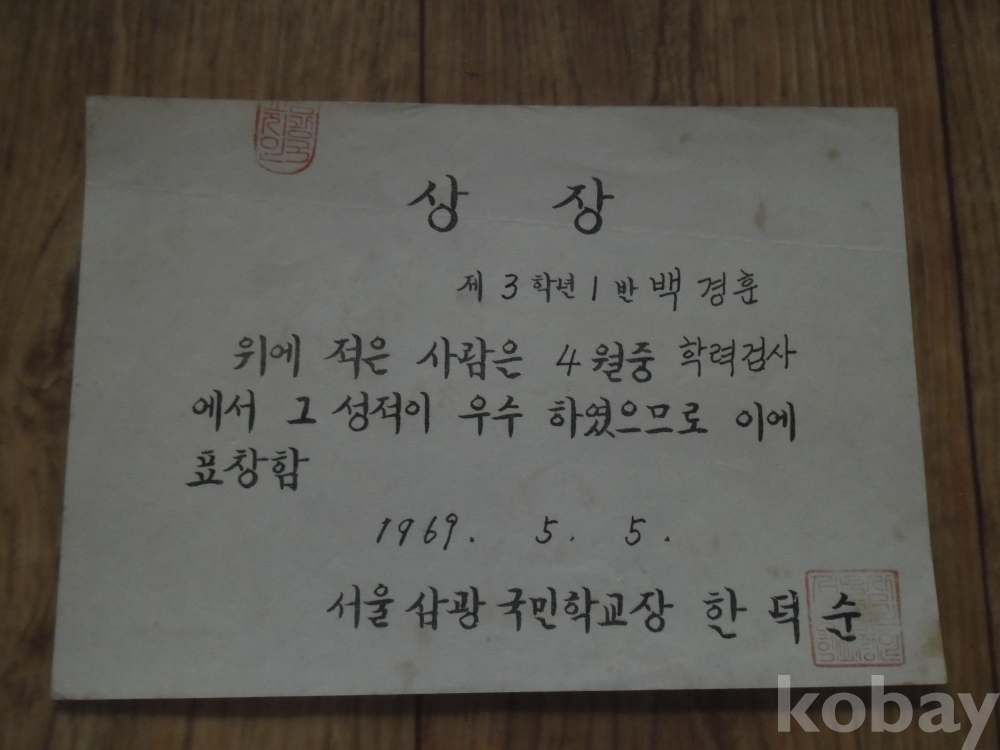 상 장
제 3 학년 1 반 백경훈
위에 적은 사람은 4 월중 학력검사
에서 그 성적이 우수 하였으므로 이에
표창함
1969. 5. 5.
서울 삼광 국민학교장 한덕순
kobay